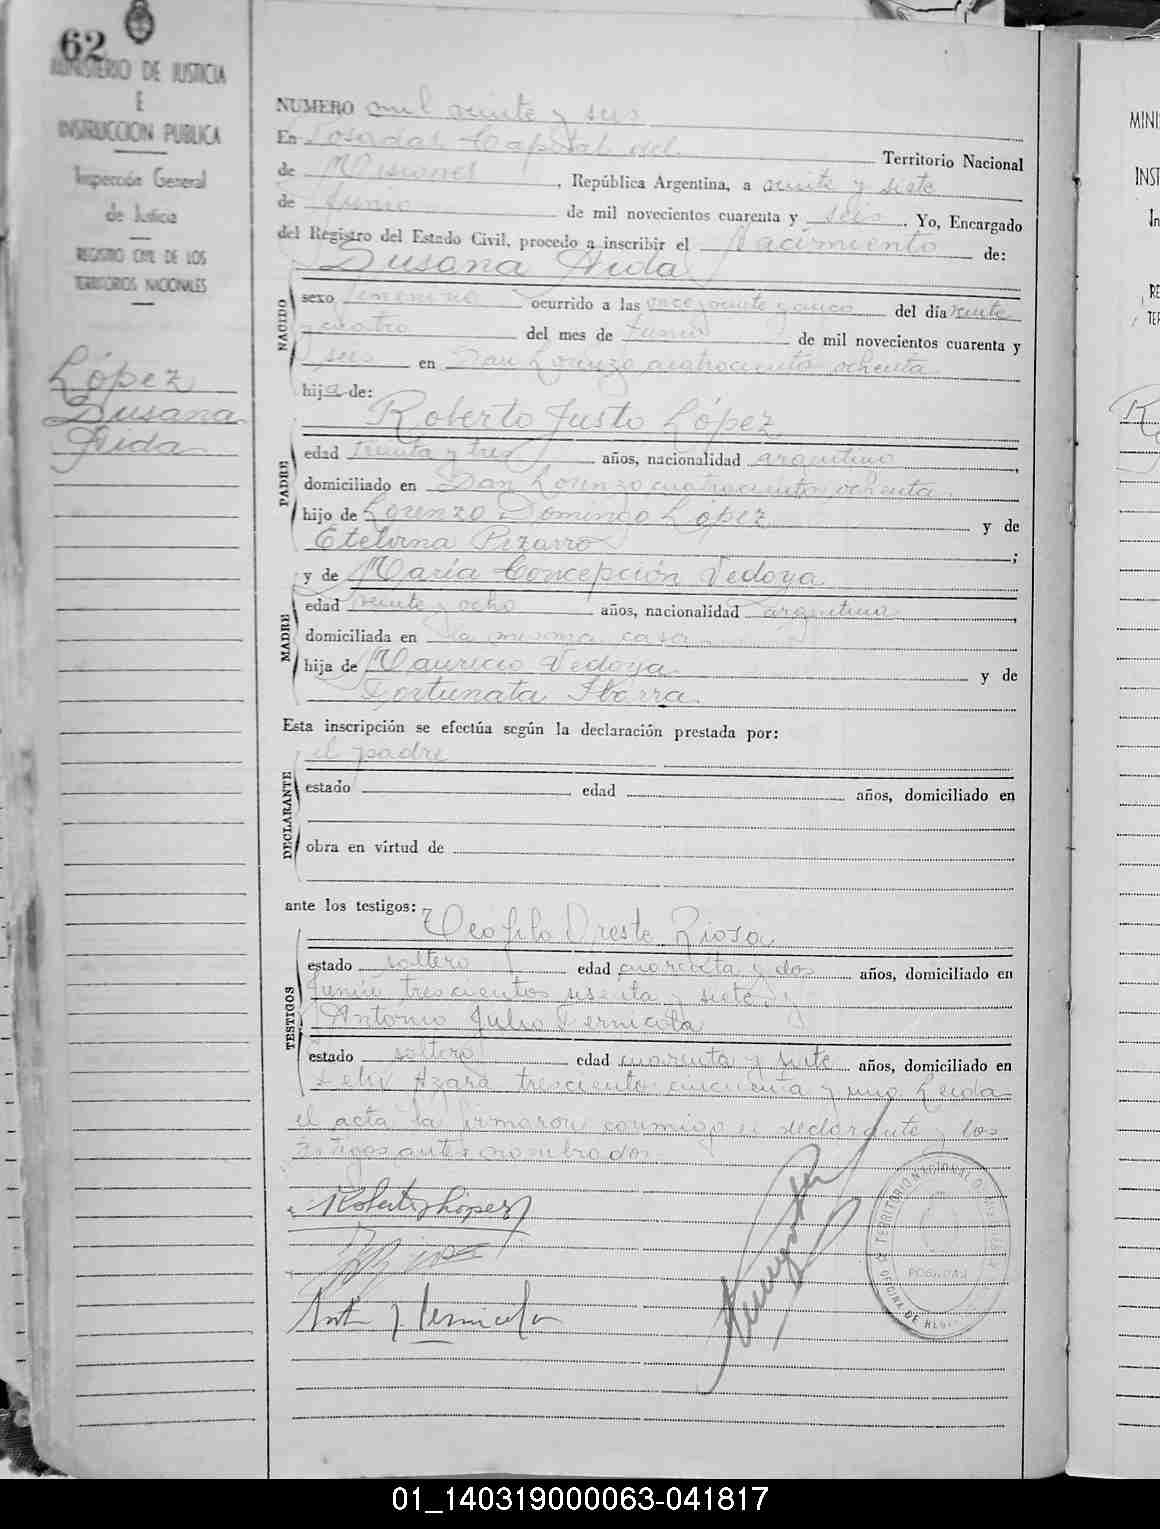 62
MINISTERIO DE JUSTICIA
E
INSTRUCCION PUBLICA
Inspección General
de Justicia
REGISTRO CIVIL DE LOS
TERRITORIOS NACIONALES
López
Susana
Aida
NUMERO mil veinte y seis
En Posadas Capital del Territorio Nacional
de Misiones, República Argentina, a veinte y siete
de Junio de mil novecientos cuarenta y seis. Yo, Encargado
del Registro del Estado Civil, procedo a inscribir el Nacimiento de:
Susana Aida
NACIDO
sexo femenino ocurrido a las once veinte y cinco del día veinte
y cuatro del mes de Junio de mil novecientos cuarenta y
seis en San Lorenzo cuatrocientos ochenta
hija de:
Roberto Justo López
PADRE
edad treinta y tres años, nacionalidad argentino,
domiciliado en San Lorenzo cuatrocientos ochenta
hijo de Lorenzo Domingo López y de
Etelvina Pizarro;
y de María Concepción Vedoya
MADRE
edad veinte y ocho años, nacionalidad argentina,
domiciliada en la misma casa
hija de Mauricio Vedoya y de
Fortunata Ibarra.
Esta inscripción se efectúa según la declaración prestada por:
el padre
DECLARANTE
estado edad años, domiciliado en
obra en virtud de
ante los testigos:
Teófilo Oreste Riosa
TESTIGOS
estado soltero edad cuarenta y dos años, domiciliado en
Junín trescientos sesenta y siete y
Antonio Julio Pernicola
estado soltero edad cuarenta y siete años, domiciliado en
Felix Azara trescientos cincuenta y uno. Leida
el acta la firmaron conmigo el declarante y los
testigos antes nombrados.
Roberto J López
Ant J Pernicola
TERRITORIO NACIONAL DE MISIONES
POSADAS
OFICINA DE
MINI
INST
In
RE
TER
01_140319000063-041817